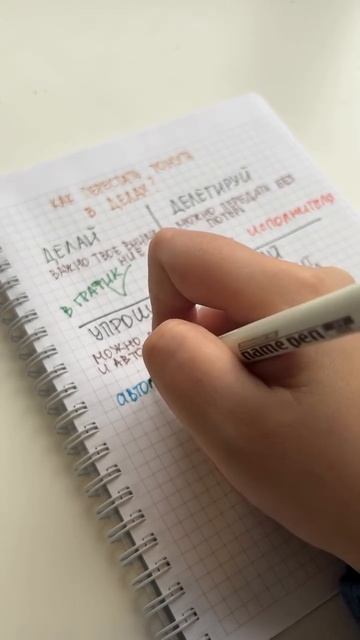 КАК ПЕРЕСТАТЬ ТОНУТЬ
В ДЕЛАХ?
ДЕЛАЙ
ВАЖНО ТВОЁ
В ГРАФИК
ДЕЛЕГИРУЙ
МОЖНО ПЕРЕДАТЬ БЕЗ
ПОТЕРЬ
ИСПОЛНИТЕЛЮ
УПРО
МОЖНО
И АВТО
авто
name pen